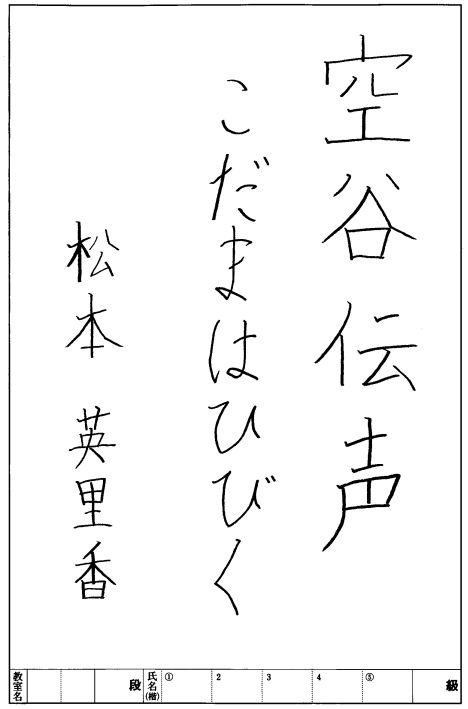 空谷伝声
こだまはひびく
松本 英里香
教室名 段 氏名(楷) ① 2 3 4 ⑤ 級